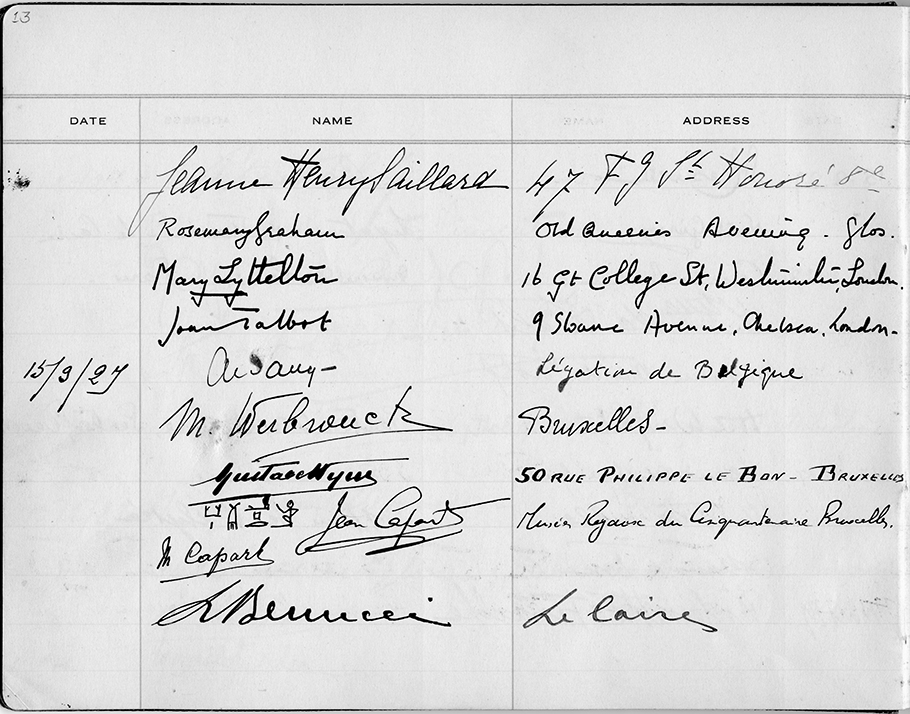 13
DATE NAME ADDRESS
Jeanne Henry Paillard 47 Fg St Honoré 8e
Rosemary Graham Old Avening . Glos.
Mary Lyttelton 16 Gt College St, Westminster, London.
Joan Talbot 9 Sloane Avenue, Chelsea, London-
15/3/27 Légation de Belgique
M. Werbrouck Bruxelles-
50 RUE PHILIPPE LE BON - BRUXELLES
Jean Capart Musées Royaux du Cinquantenaire Bruxelles.
M Capart
Le Caire